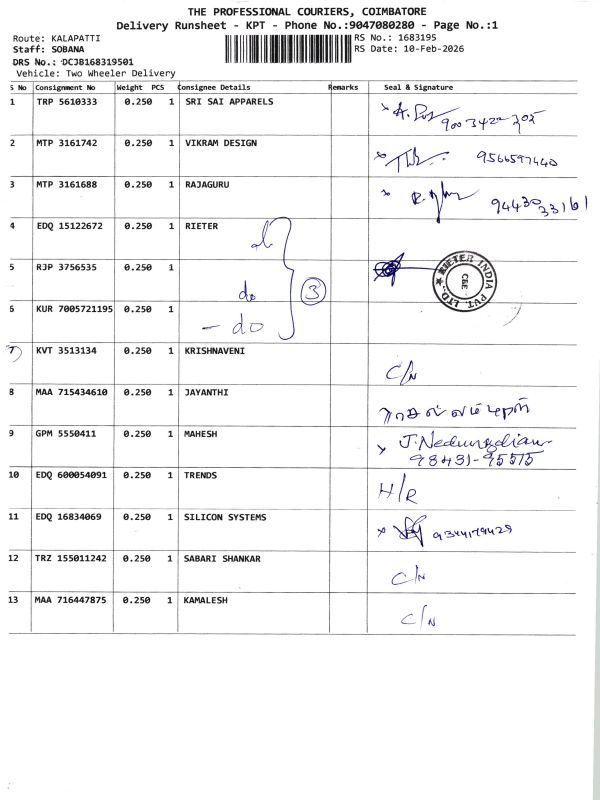 THE PROFESSIONAL COURIERS, COIMBATORE
Delivery Runsheet - KPT - Phone No.:9047080280 - Page No.:1
Route: KALAPATTI
RS No.: 1683195
Staff: SOBANA
RS Date: 10-Feb-2026
DRS No.: DCJB168319501
Vehicle: Two Wheeler Delivery
S No Consignment No Weight PCS Consignee Details Remarks Seal & Signature
1 TRP 5610333 0.250 1 SRI SAI APPARELS
2 MTP 3161742 0.250 1 VIKRAM DESIGN 9566597440
3 MTP 3161688 0.250 1 RAJAGURU 9443033161
4 EDQ 15122672 0.250 1 RIETER
5 RJP 3756535 0.250 1 do 3 RIETER INDIA PVT. LTD. C&E
6 KUR 7005721195 0.250 1 - do
7 KVT 3513134 0.250 1 KRISHNAVENI C/N
8 MAA 715434610 0.250 1 JAYANTHI
9 GPM 5550411 0.250 1 MAHESH J. Nedungdian
98431-95515
10 EDQ 600054091 0.250 1 TRENDS H/R
11 EDQ 16834069 0.250 1 SILICON SYSTEMS 9344179429
12 TRZ 155011242 0.250 1 SABARI SHANKAR C/N
13 MAA 716447875 0.250 1 KAMALESH C/N